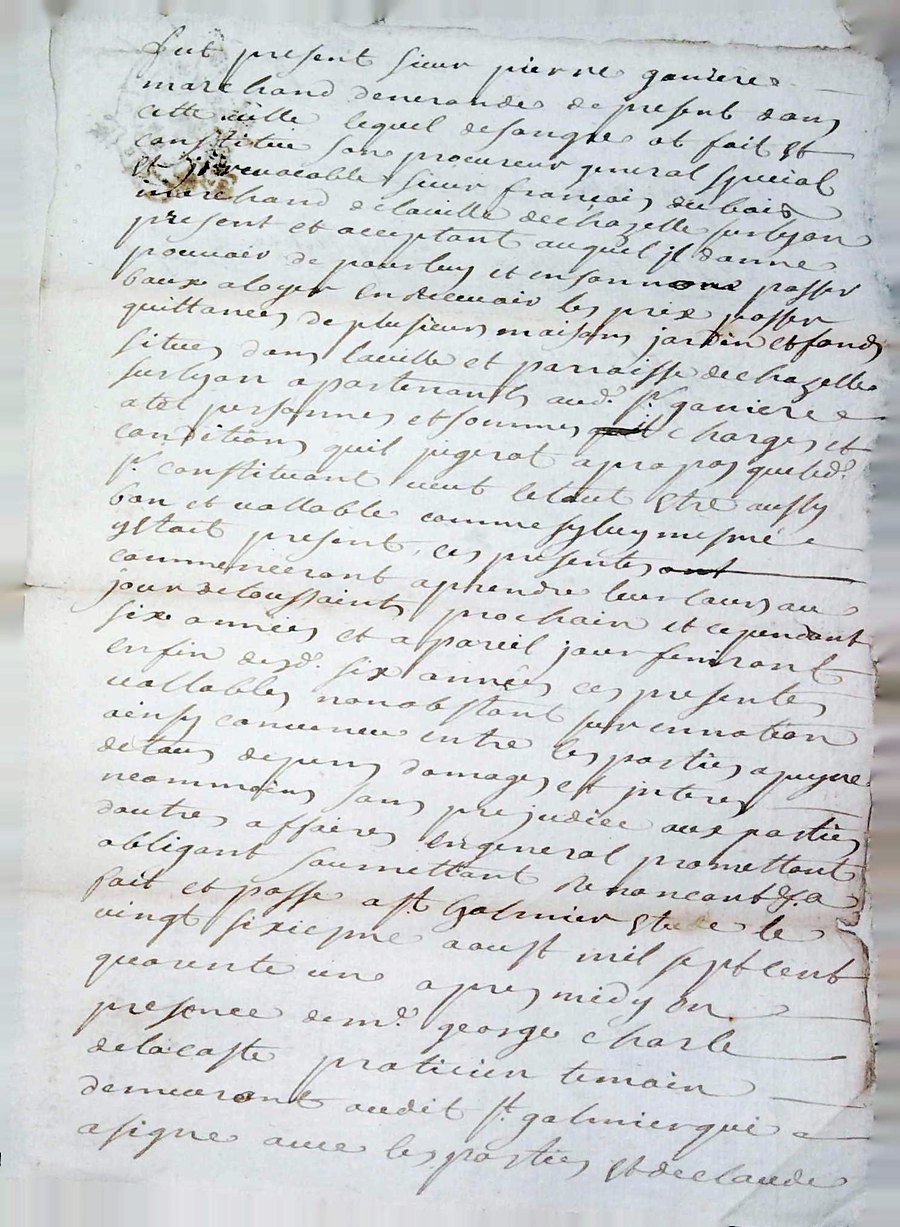 fut présent sieur pierre ganiere
marchand de nerande de present dans
cette ville lequel de son gre at fait et
constitue son procureur general special
et jrrevocable sieur françois dubois
marchand de laville de chazelle sur lyon
present et acceptant auquel jl donne
pouvoir de pour luy et en son nom passer
baux a loyer en recevoir les prix passer
quittances de plusieurs maisons jardin et fonds
situes dans laville et parroisse de chazelle
sur lyon apartenants aud. sr. ganiere
a tel personnes et sommes charges et
conditions quil jugerat apropos que led.
sr. constituant veut letout etre aussy
bon et vallable comme sy luy mesme
y stait present, ces presentes
commenceront a prendre leur cours au
jour de toussaints prochain et ce pendant
six années et a pareil jour finiront
enfin desd. six années ces presentes
vallables nonobstant surennation
ainsy convenu entre les parties a peyne
de tous depens domages et jnterets
neammoins sans prejudice aux parties
dautres affaires en general promettant
obligant soumettant renoncant &a
fait et passé a st. Galmier etude le
vingt sixiesme aoust mil sept cent
quarente un apres midy en
presence de me. george charle
de lacoste praticien temoin
demeurant audit st. galmier qui a
signe avec les parties et de claude